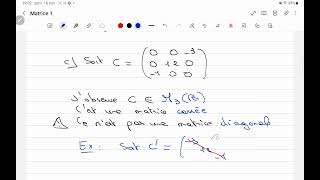 Matrice 1
c) Soit C = ( 0 0 -3
0 12 0
-4 0 0 )
J'observe C ∈ M₃(R)
C'est une matrice carrée
⚠ Ce n'est pas une matrice diagonale
Ex: Soit C' = (